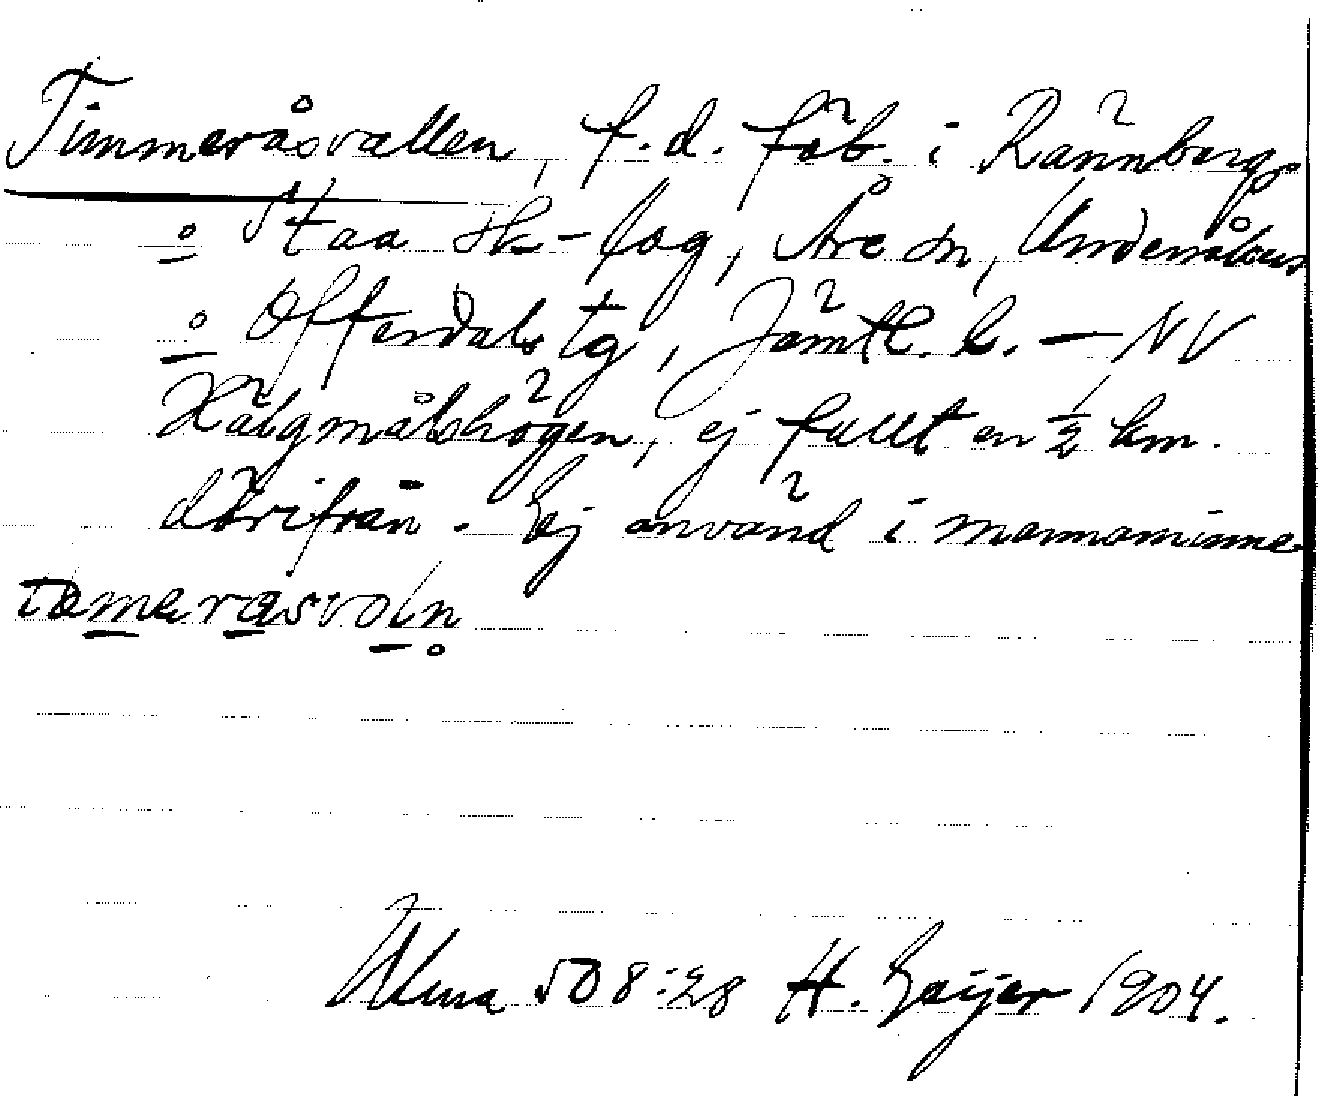 Timmeråsvallen, f.d. fäb. i Rännbergs
o Staa sk-lag, Åre sn, Undersåkers
o Offerdals tg, Jämtl. l. — NV
Hälgmålshögen, ej fullt en ½ km.
därifrån. Ej använd i mannaminne
tamerasvoln
Alma 508:28 H. Geijer 1904.